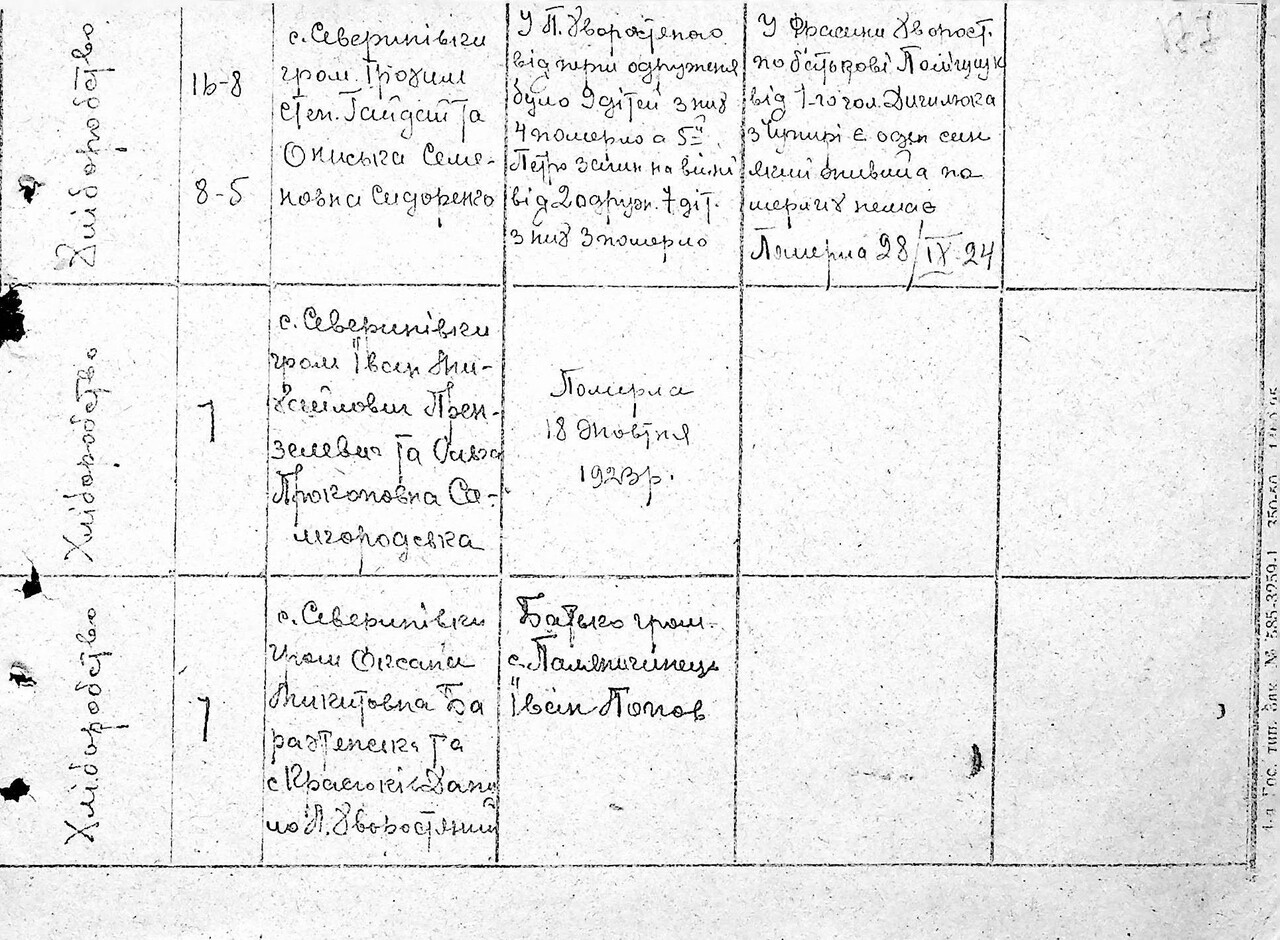 Хліборобство
16-8
8-5
с. Северинівки
гром. Трохим
Степ. Гайдай та
Ониська Семе-
новна Сидоренко
У П. Хворостяного
від перш одруженя
було 9 дітей з них
4 померло а 5й
Петро загин на війні
від 2 одруж. 7 діт.
з них 3 померло
У Фросини Хворост.
по батькові Поліщук
від 1-го чол.
з Чупирі є один син
який живий а по
мерлих немає
Померла 28/IX-24
Хліборобство
1
с. Северинівки
гром Іван Ми-
хайлович Прен-
зелевич та Ольга
Прокоповна Са-
мгородська
Померла
18 жовтня
1923р.
Хліборобство
1
с. Северинівки
гром Оксана
Микитовна Ба
рахтенська та
с Краськів Дани
ло П. Хворостяний
Батько гром.
с.
Іван Попов
1-а Гос. тип. Зак. № 585-3259-1